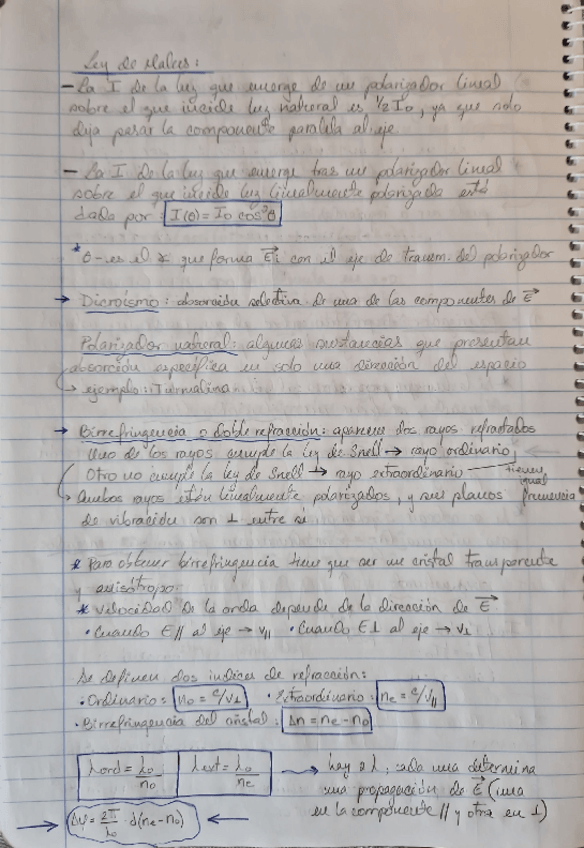 Ley de Malus:
- La I de la luz que emerge de un polarizador lineal
sobre el que incide luz natural es 1/2 I₀, ya que solo
deja pasar la componente paralela al eje
- La I de la luz que emerge tras un polarizador lineal
sobre el que incide luz linealmente polarizada está
dada por: I(θ) = I₀ cos²θ
* θ - es el ∢ que forma E⃗i con el eje de transm. del polarizador
→ Dicroísmo: absorción selectiva de una de las componentes de E⃗
Polarizador natural: algunas sustancias que presentan
absorción específica en solo una dirección del espacio
↳ ejemplo: Turmalina
→ Birrefringencia o doble refracción: aparecen dos rayos refractados
Uno de los rayos cumple la ley de Snell → rayo ordinario
Otro no cumple la ley de Snell → rayo extraordinario — tienen igual frecuencia
↳ Ambos rayos están linealmente polarizados, y sus planos
de vibración son ⊥ entre sí
* Para obtener birrefringencia tiene que ser un cristal transparente
y anisótropo
* Velocidad de la onda depende de la dirección de E⃗
• Cuando E∥ al eje → v∥ • Cuando E⊥ al eje → v⊥
Se definen dos índices de refracción:
• Ordinario: n₀ = c/v⊥ • Extraordinario: nₑ = c/v∥
• Birrefringencia del cristal: Δn = nₑ - n₀
λord = λ₀/n₀ λext = λ₀/nₑ → hay 2 λ, cada una determina
una propagación de E⃗ (una
en la componente ∥ y otra en ⊥)
→ Δψ = 2π/λ₀ · d(nₑ - n₀) ←